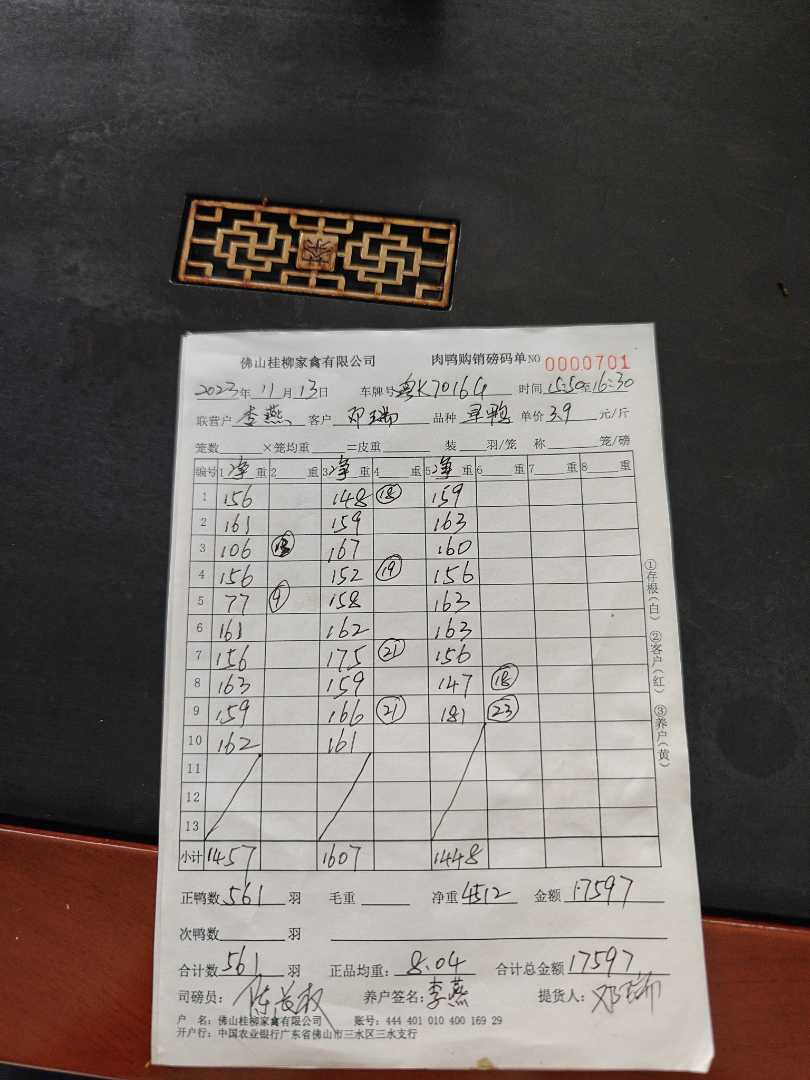 茶
佛山桂柳家禽有限公司 肉鸭购销磅码单 NO 0000701
2023年 11月 13日 车牌号 粤K7016G 时间 15:50至16:30
联营户 李燕 客户 邓瑞 品种 旱鸭 单价 3.9 元/斤
笼数 ×笼均重 =皮重 装 羽/笼 称 笼/磅
编号 1净重 2 重 3净重 4 重 5净重 6 重 7 重 8 重
1 156 148 18 159
2 161 159 163
3 106 167 160
4 156 152 19 156
5 77 9 158 163
6 161 162 163
7 156 175 21 156
8 163 159 147 18
9 159 166 21 181 23
10 162 161
11
12
13
小计 1457 1607 1448
正鸭数 561 羽 毛重 净重 4512 金额 17597
次鸭数 羽
合计数 561 羽 正品均重: 8.04 合计总金额 17597
司磅员: 养户签名: 李燕 提货人: 邓瑞
户 名: 佛山桂柳家禽有限公司 账号: 444 401 010 400 169 29
开户行: 中国农业银行广东省佛山市三水区三水支行
①存根(白) ②客户(红) ③养户(黄)